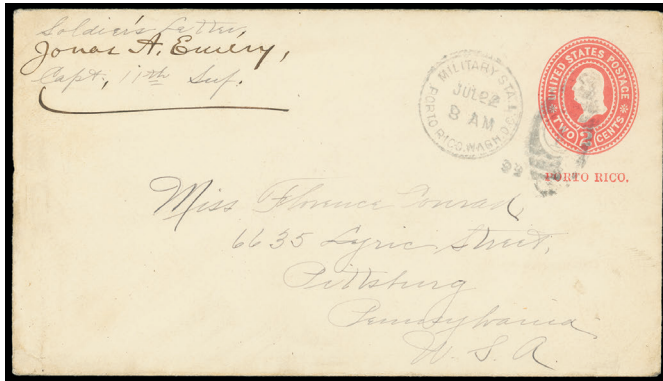 Soldier's Letter,
Jonas A. Emery,
Capt, 11th Inf.
MILITARY STA. No
PORTO RICO, WASH. D.C.
JUL 22
8 AM
UNITED STATES POSTAGE
TWO 2 CENTS
PORTO RICO.
Miss Florence Conrad,
6635 Lyric Street,
Pittsburg
Pennsylvania
U. S. A.